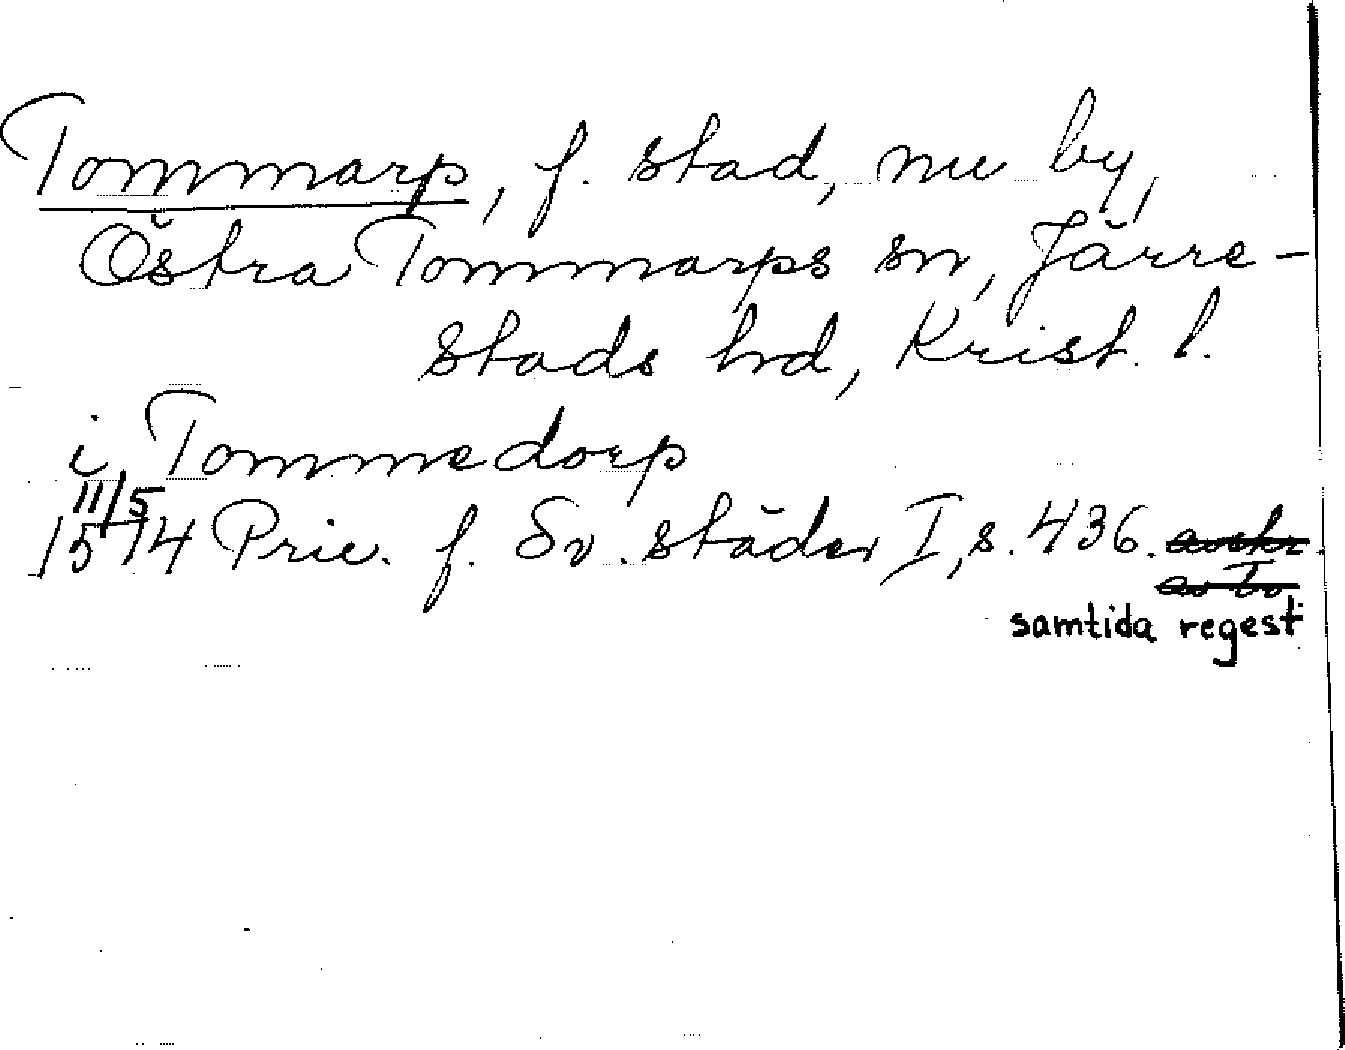 Tommarp, f. stad, nu by,
Östra Tommarps sn, Järre-
stads hd, Krist. l.
i Tommedorp
11/5
1514 Priv. f. Sv. städer I, s. 436. avskr.
av To
samtida regest